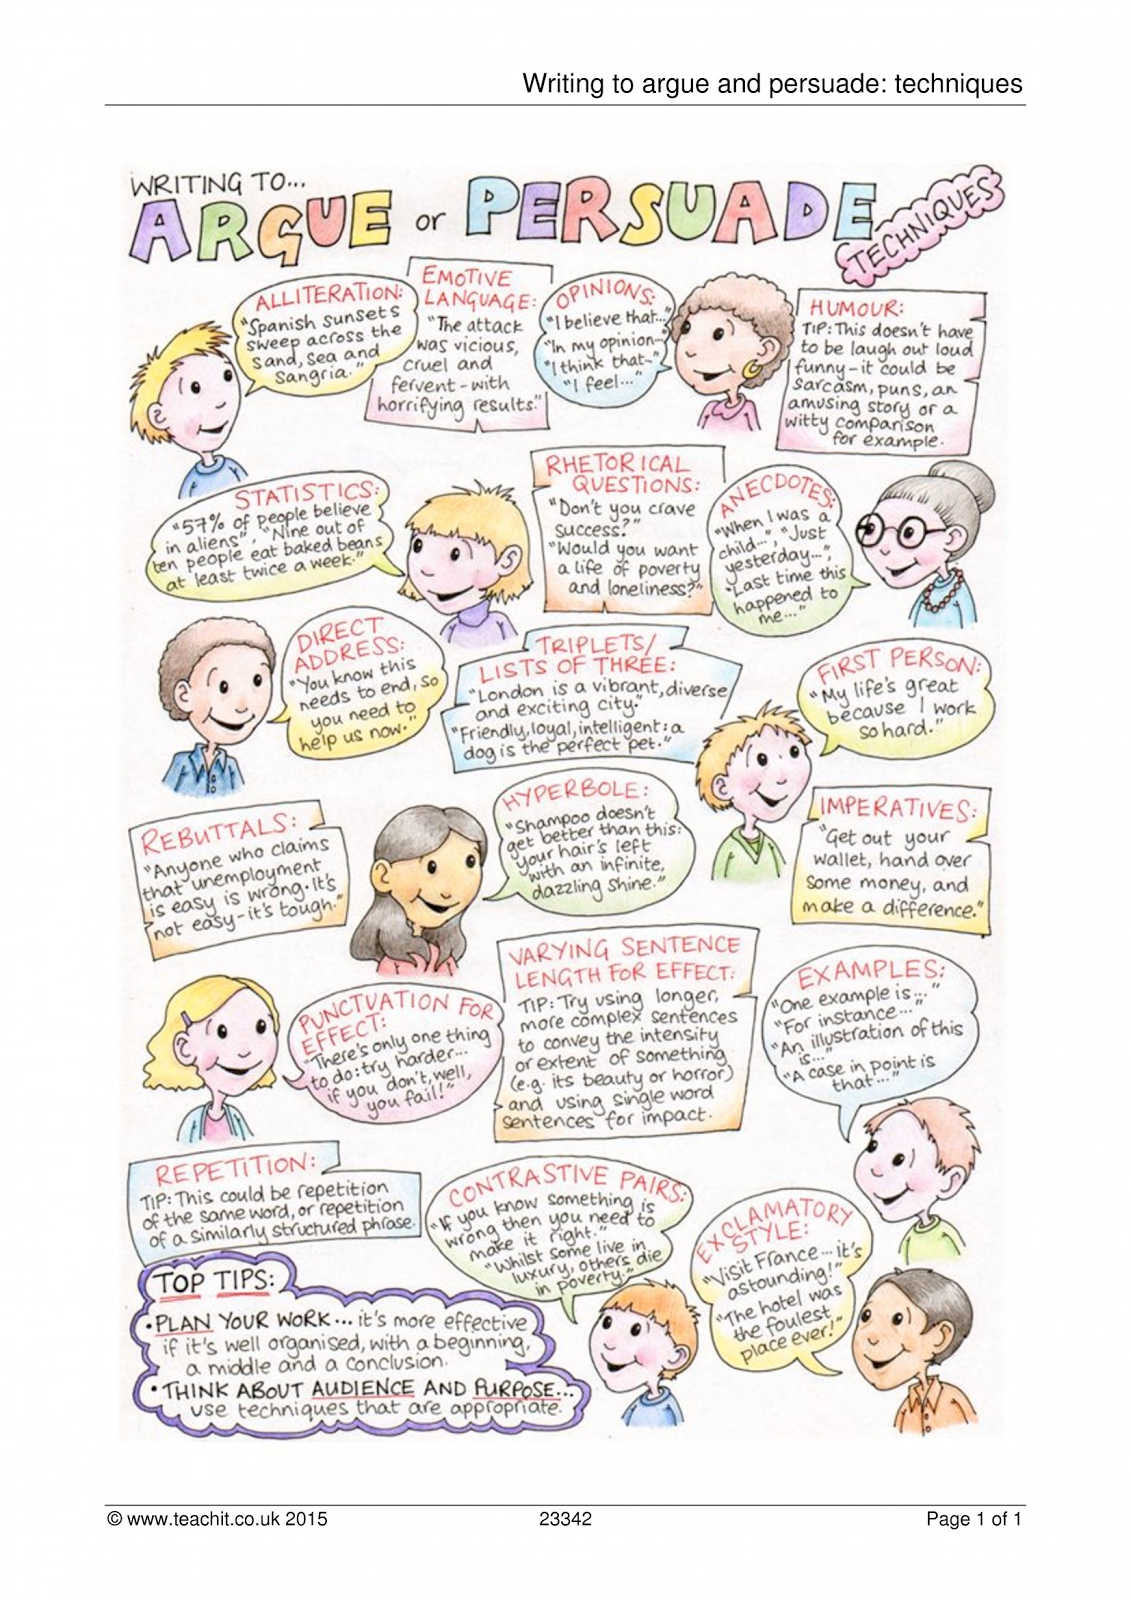 Writing to argue and persuade: techniques
WRITING TO...
ARGUE or PERSUADE
TECHNIQUES
ALLITERATION:
"Spanish sunsets
sweep across the
sand, sea and
sangria."
EMOTIVE
LANGUAGE:
"The attack
was vicious,
cruel and
fervent - with
horrifying results."
OPINIONS:
"I believe that..."
"In my opinion-"
"I think that-"
"I feel..."
HUMOUR:
TIP: This doesn't have
to be laugh out loud
funny - it could be
sarcasm, puns, an
amusing story or a
witty comparison
for example.
STATISTICS:
"57% of people believe
in aliens". "Nine out of
ten people eat baked beans
at least twice a week."
RHETORICAL
QUESTIONS:
"Don't you crave
success?"
"Would you want
a life of poverty
and loneliness?"
ANECDOTES:
"When I was a
child...", "Just
yesterday...",
"Last time this
happened to
me..."
DIRECT
ADDRESS:
"You know this
needs to end, so
you need to
help us now."
TRIPLETS/
LISTS OF THREE:
"London is a vibrant, diverse
and exciting city."
"Friendly, loyal, intelligent: a
dog is the perfect pet."
FIRST PERSON:
"My life's great
because I work
so hard."
REBUTTALS:
"Anyone who claims
that unemployment
is easy is wrong. It's
not easy - it's tough."
HYPERBOLE:
"Shampoo doesn't
get better than this:
your hair's left
with an infinite,
dazzling shine."
IMPERATIVES:
"Get out your
wallet, hand over
some money, and
make a difference."
PUNCTUATION FOR
EFFECT:
"There's only one thing
to do: try harder...
if you don't, well,
you fail!"
VARYING SENTENCE
LENGTH FOR EFFECT:
TIP: Try using longer,
more complex sentences
to convey the intensity
or extent of something
(e.g. its beauty or horror)
and using single word
sentences for impact.
EXAMPLES:
"One example is..."
"For instance..."
"An illustration of this
is..."
"A case in point is
that..."
REPETITION:
TIP: This could be repetition
of the same word, or repetition
of a similarly structured phrase.
CONTRASTIVE PAIRS:
"If you know something is
wrong then you need to
make it right."
"Whilst some live in
luxury, others die
in poverty."
EXCLAMATORY
STYLE:
"Visit France... it's
astounding!"
"The hotel was
the foulest
place ever!"
TOP TIPS:
• PLAN YOUR WORK... it's more effective
if it's well organised, with a beginning,
a middle and a conclusion.
• THINK ABOUT AUDIENCE AND PURPOSE...
use techniques that are appropriate.
© www.teachit.co.uk 2015
23342
Page 1 of 1